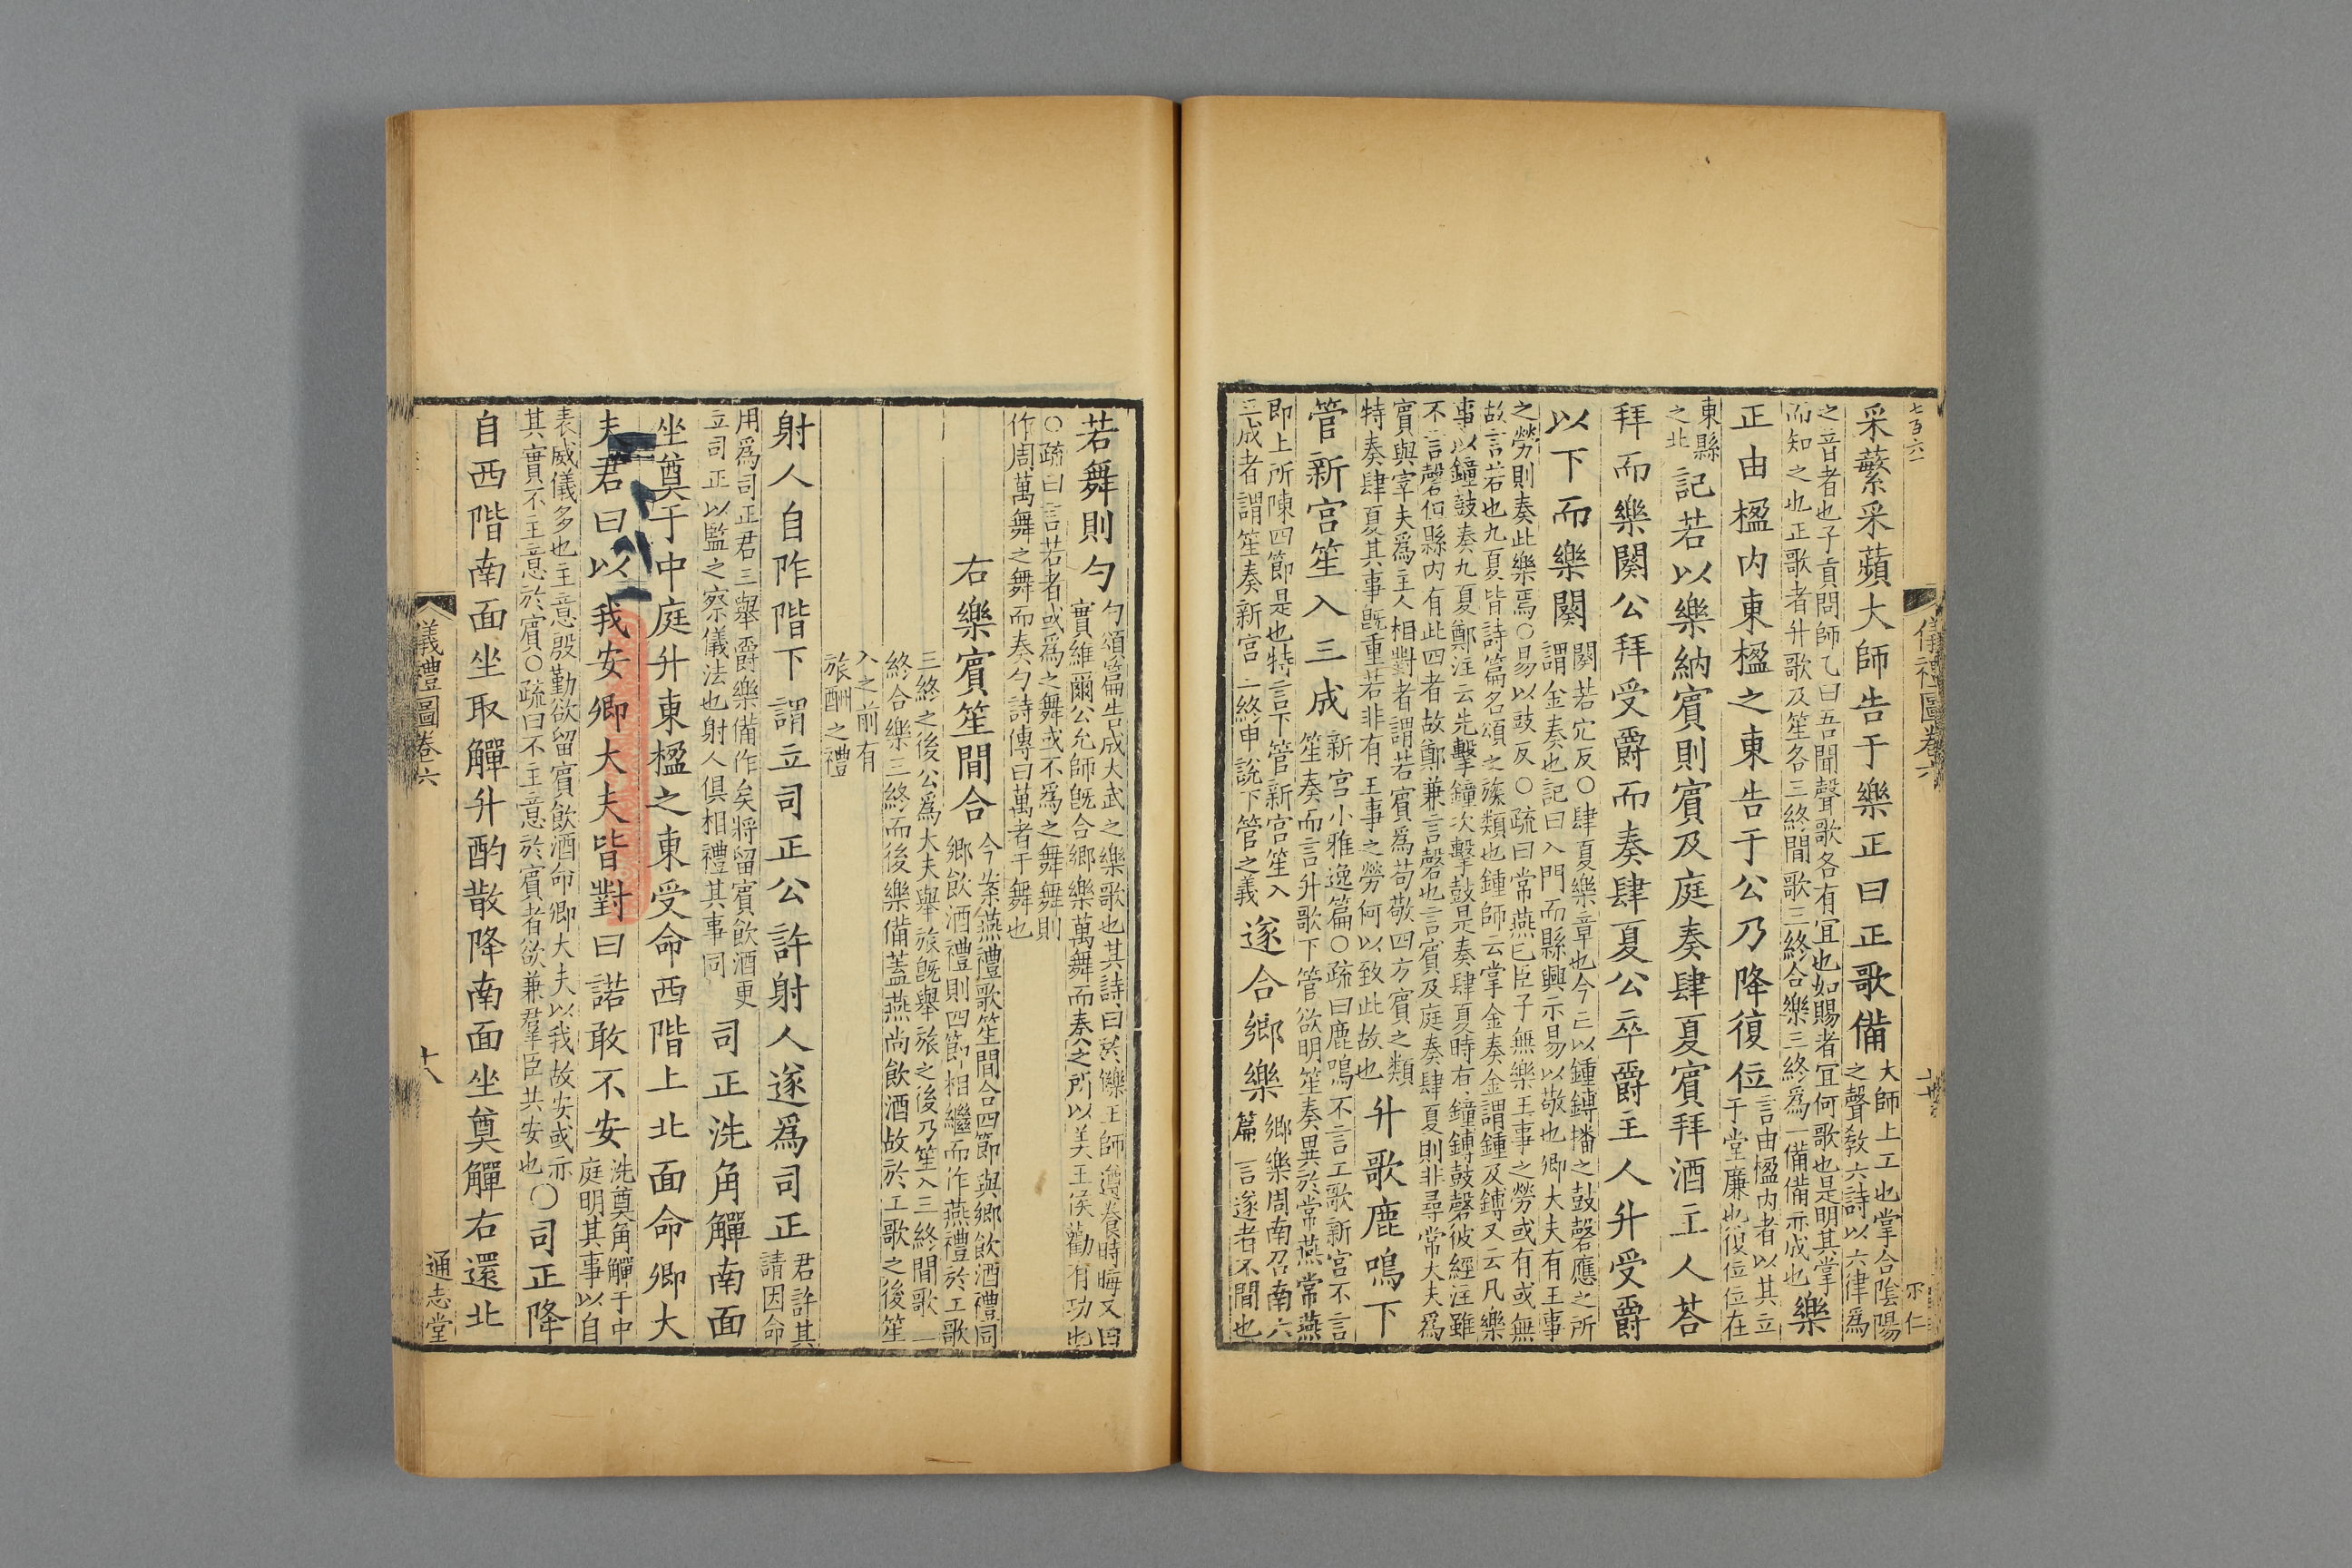 七百六一
采蘩采蘋大師告于樂正曰正歌備大師上工也掌合陰陽之聲敎六詩以六律爲
之音者也子貢問師乙曰吾聞聲歌各有宜也如賜者宜何歌也是明其掌而知之也正歌者升歌及笙各三終間歌三終合樂三終爲一備備亦成也樂
正由楹內東楹之東告于公乃降復位言由楹內者以其立于堂廉也復位位在
東縣之北記若以樂納賓則賓及庭奏肆夏賓拜酒主人荅
拜而樂闋公拜受爵而奏肆夏公卒爵主人升受爵
以下而樂闋闋若穴反○肆夏樂章也今亡以鍾鎛播之鼓磬應之所謂金奏也記曰入門而縣興示易以敬也卿大夫有王事
之勞則奏此樂焉○易以豉反○疏曰常燕已臣子無樂王事之勞或有或無故言若也九夏皆詩篇名頌之族類也鍾師云掌金奏金謂鍾及鎛又云凡樂
事以鐘鼓奏九夏鄭注云先擊鐘次擊鼓是奏肆夏時有鐘鎛鼓磬彼經注雖不言磬但縣內有此四者故鄭兼言磬也言賓及庭奏肆夏則非尋常大夫爲
賓與宰夫爲主人相對者謂若賓爲苟敬四方賓之類特奏肆夏其事旣重若非有王事之勞何以致此故也升歌鹿鳴下
管新宮笙入三成新宮小雅逸篇○疏曰鹿鳴不言工歌新宮不言笙奏而言升歌下管欲明笙奏異於常燕常燕
即上所陳四節是也特言下管新宮笙入三成者謂笙奏新宮三終申說下管之義遂合鄉樂鄉樂周南召南六篇言遂者不間也
儀禮圖卷六
若舞則勺勺頌篇告成大武之樂歌也其詩曰於鑠王師遵養時晦又曰實維爾公允師旣合鄉樂萬舞而奏之所以美王侯勸有功也
○疏曰言若者或爲之舞或不爲之舞舞則作周萬舞之舞而奏勺詩傳曰萬者干舞也
右樂賓笙間合今案燕禮歌笙間合四節與鄉飲酒禮同鄉飲酒禮則四節相繼而作燕禮於工歌
三終之後公爲大夫舉旅旣舉旅之後乃笙入三終間歌三終合樂三終而後樂備蓋燕尚飲酒故於工歌之後笙
入之前有旅酬之禮
射人自阼階下謂立司正公許射人遂爲司正君許其請因命
用爲司正君三舉爵樂備作矣將留賓飲酒更立司正以監之察儀法也射人俱相禮其事同司正洗角觶南面
坐奠于中庭升東楹之東受命西階上北面命卿大
夫君曰以我安卿大夫皆對曰諾敢不安洗奠角觶于中庭明其事以自
表威儀多也主意殷勤欲留賓飲酒命卿大夫以我故安或亦其實不主意於賓○疏曰不主意於賓者欲兼羣臣共安也○司正降
自西階南面坐取觶升酌散降南面坐奠觶右還北
儀禮圖卷六
十八
通志堂